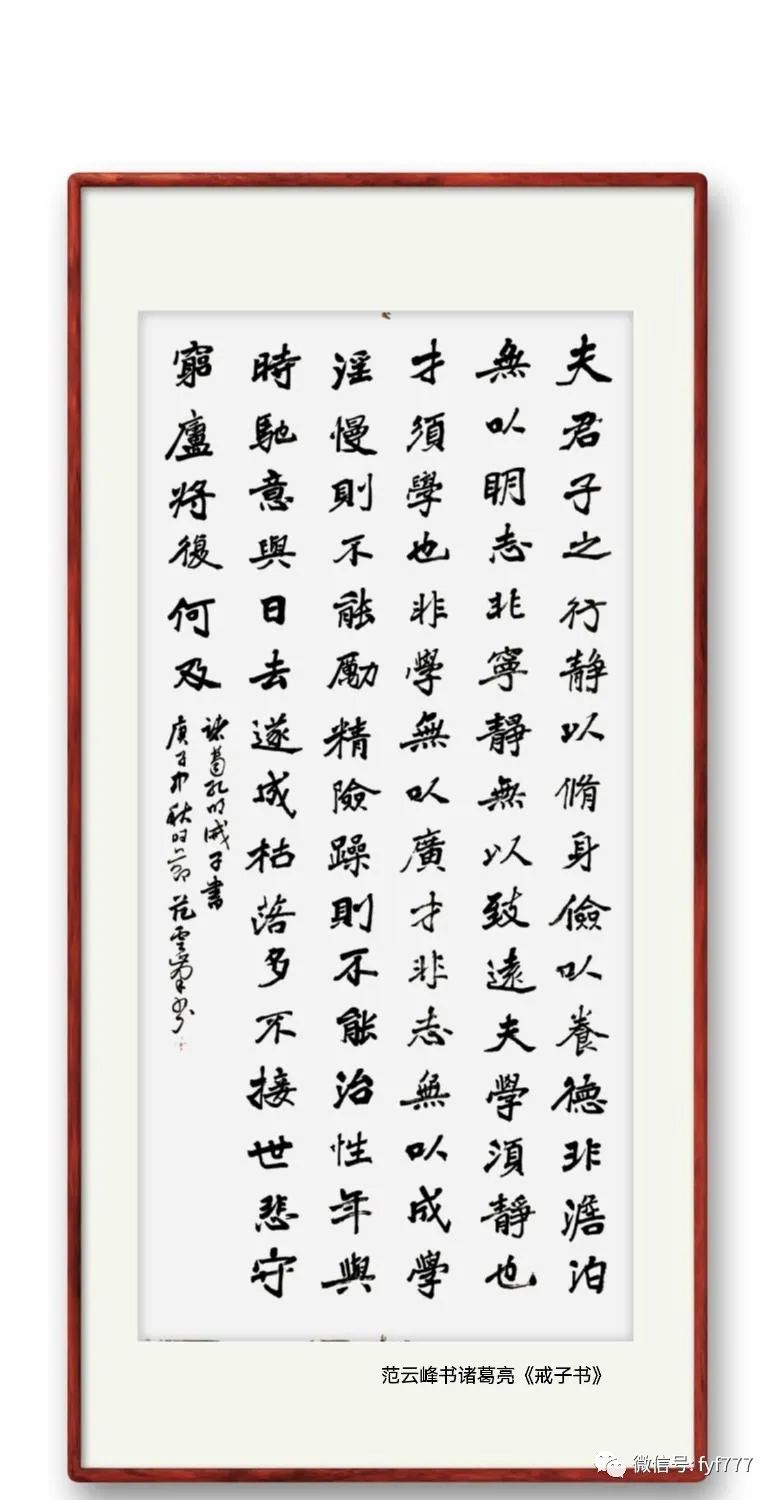 夫君子之行静以脩身儉以養德非澹泊
無以明志非寧靜無以致遠夫學須靜也
才須學也非學無以廣才非志無以成學
淫慢則不能勵精險躁則不能治性年與
時馳意與日去遂成枯落多不接世悲守
窮廬將復何及
諸葛孔明誡子書
庚子中秋时节范雲峯书
范云峰书诸葛亮《戒子书》
微信号: fyf777